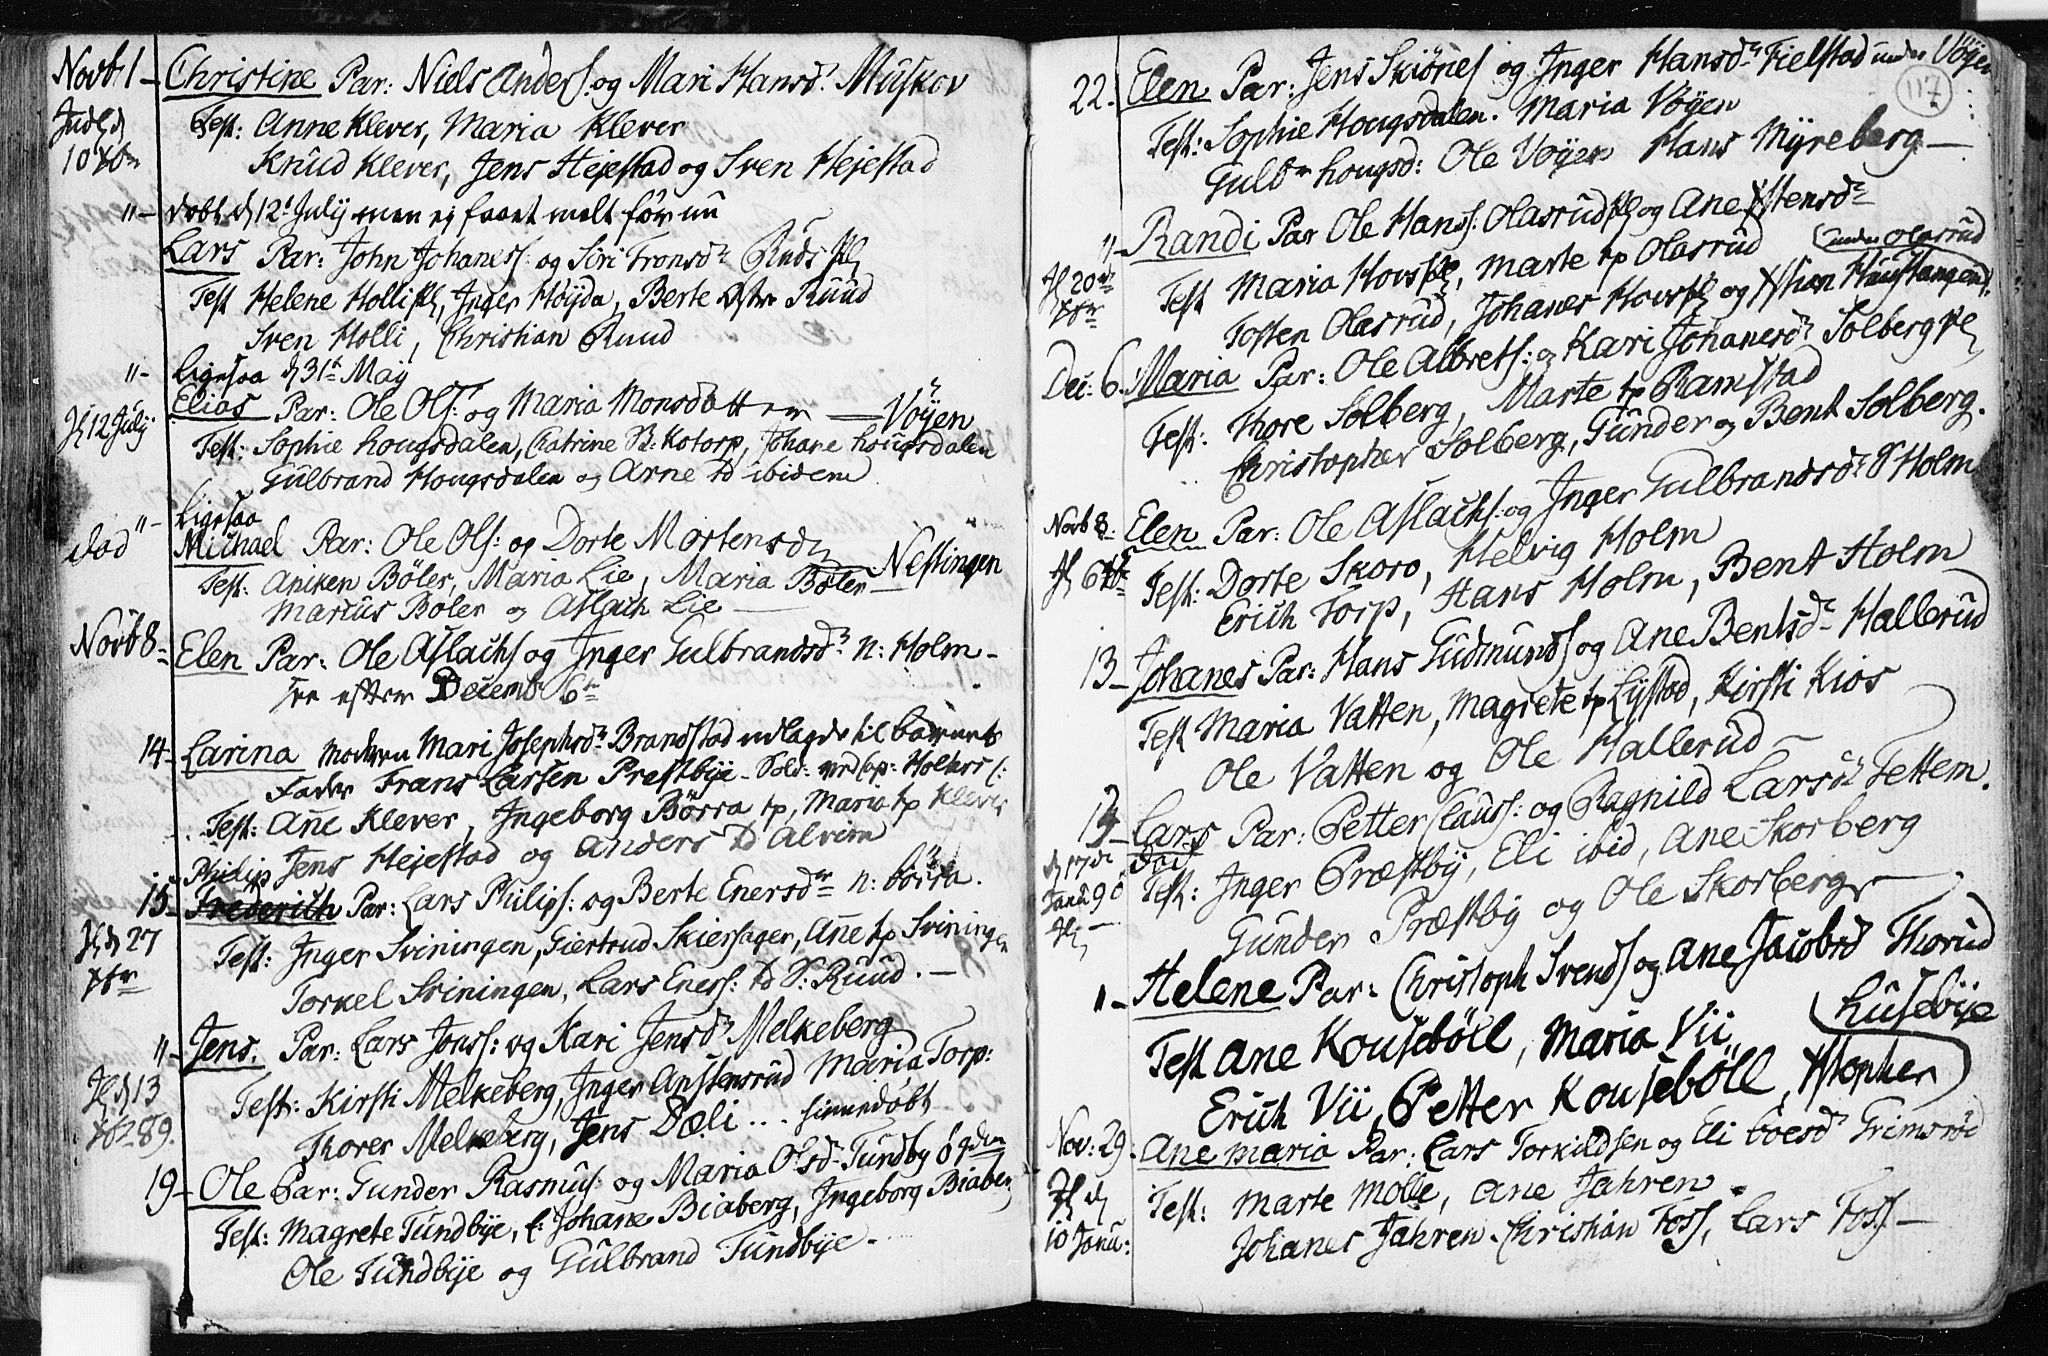 Novb: 1 – Christine Par: Niels Anders: og Mari Hansd: Muskov
Test: Anne Klever, Maria Klever
Knud Klever, Jens Hejestad og Sven Hejestad
10 Xbr
" – døbt d 12t July men ej faaet melt før nu
Lars Par: John Johanes: og Siri Tronsdr Ruds
Test Helene Holli, Inger Høyda, Berte Ruud
Sven Holli, Christian Ruud
" – Ligesaa d 31t May
Elias Par: Ole Ols: og Maria Monsdatter – Vøyen
12 July
Test: Sophie Hougsdalen, Catrine Kotorp, Johane Hougsdalen
Gulbrand Hougsdalen og Arne ibidem
" – Ligesaa
Død Michael Par: Ole Ols: og Dorte Mortensd Nestingen
Test: Aniken Bøler, Maria Lie, Maria Bøler –
Marcus Bøler og Aslach Lie –
Novb 8 – Elen Par: Ole Aslachs og Inger Gulbrandsdr n: Holm –
see efter Decemb 6te
14 – Larina Moderen Mari Josephsdr Brandstad udlagde til barnets
Fader Frans Larsen Prestbye – Sold:
Test: Anne Klever, Ingeborg Børra tp, Maria tp Klever
Jens Hejestad og Anders Alvim
Philip
15 – Frederich Par: Lars Philips: og Berte Enersdr n: børra.
27 Xbr
Test: Inger Sviningen, Giertrud Skiersager, Anne tp Sviningen
Torkel Sviningen, Lars Eners: S: Ruud. –
" – Jens. Par: Lars Jons: og Kari Jensdr Melkeberg
13 Xbr 89.
Test: Kirsti Melkeberg, Inger Anstensrud Maria Torp:
Thorer Melkeberg, Jens Dæli ... hiemedøbt
19 – Ole Par: Gunder Rasmus: og Maria Olsd Tundby
Test: Magrete Tundbye, Johane Biaberg, Ingeborg Biaberg
Ole Tundbye og Gulbrand Tundbye –
117
22. Elen Par: Jens Skiönes og Inger Hansdr Fielstad under Vøyen
Test: Sophie Hougsdalen. Maria Vøyen
Gulbr hougsd: Ole Vøyen Hans Myreberg –
" – Randi Par Ole Hans: Olasrud og Ane Xstensdr
under Olasrud
20 Xbr
Test Maria Hovs, Marte tp Olasrud
Tosten Olasrud, Johanes Hovs og
Dec: 6. Maria Par: Ole Albrets: og Kari Johanesdr Solberg
Test: Thore Solberg, Marte tp Ramstad
Christopher Solberg, Gunder og Bent Solberg.
Novb 8 – Elen Par: Ole Aslachs: og Inger Gulbrandsdr Holm
6 Xbr Test: Dorte Skoro, Helvig Holm
Erich Torp, Hans Holm, Bent Holm
13 – Johanes Par: Hans Gudmunds og Ane Bentsdr Hallerud
Test Maria Vatten, Magrete tp Lystad, Kirsti Kios
Ole Vatten og Ole Hallerud –
Lars Par: Petter Claus: og Ragnild Larsdr Tettem.
d 17de Janu 90
Test: Inger Præstby, Eli ibid, Ane Skorberg
Gunder Præstby og Ole Skorberg –
" – Helene Par: Christoph Svends og Ane Jacobsd Thorud
Husebye
Test Ane Kousebøll, Maria Vii
Erich Vii, Petter Kousebøll, Xstopher
Nov: 29. Ane Maria Par: Lars Torkildsen og Eli boesdr Grimsrød
10 Janu:
Test: Marte Molle, Ane Jahren –
Johanes Jahren. Christian Foss, Lars Foss –